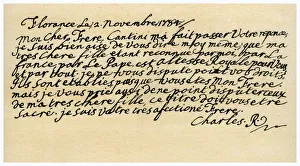 Florance Le 2 Novembre 1784
Mon Cher Frere Cantini m'a fait passer Votre reponce,
je suis bien aise de Vous dire moy même, que ma
tres chere fille etant reconnue par moy par la
france, par Le Pape est altesse Royale pour Vous
et par tout, je ne Vous dispute point Vos droits,
Ils sont etablis puisque Vous etes Mon Frere
mais je Vous prie aussi de ne point disputer ceux
de ma tres chere fille, ce titre doit vous etre
Sacré. je suis Votre tres afectioné Frere.
Charles R